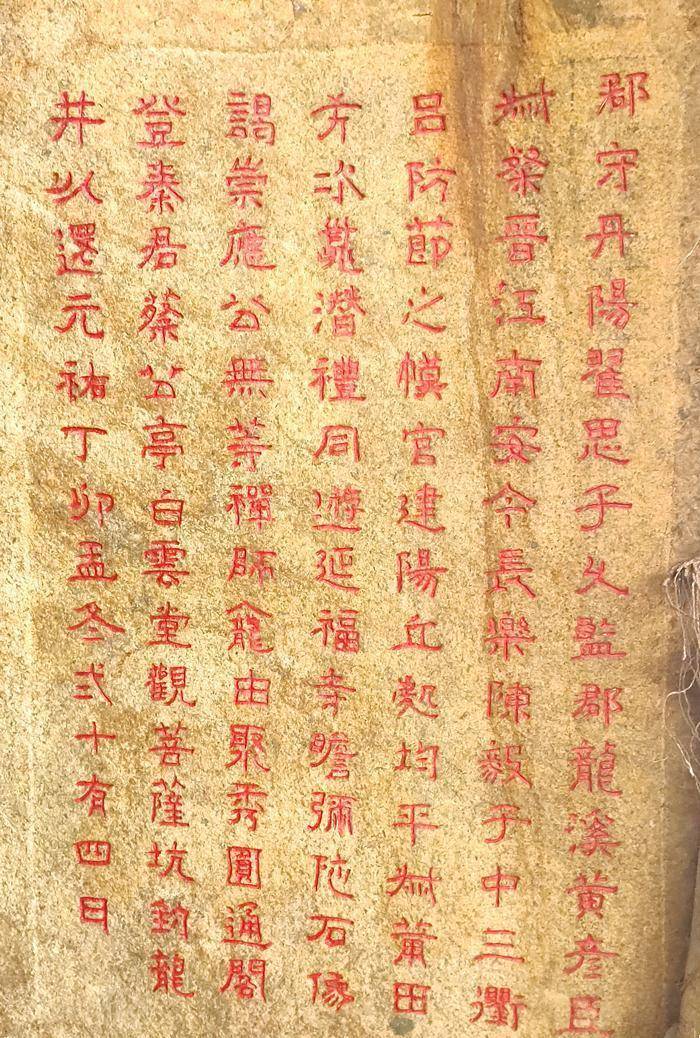 郡守丹陽翟思子久監郡龍溪黃彥臣
叔粲晉江南安令長樂陳毅子中三衢
呂防節之幙官建陽丘處均平叔莆田
方次夔潛禮同遊延福寺瞻彌陁石像
謁崇應公無等禪師龕由聚秀圓通閣
登秦君蔡公亭白雲堂觀菩薩坑釣龍
井以還元祐丁卯孟冬弍十有四日